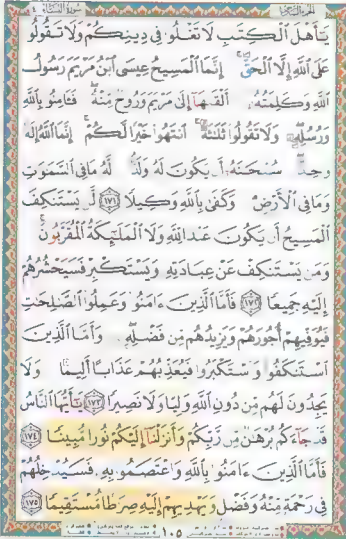 يَٰٓأَهۡلَ ٱلۡكِتَٰبِ لَا تَغۡلُواْ فِي دِينِكُمۡ وَلَا تَقُولُواْ
عَلَى ٱللَّهِ إِلَّا ٱلۡحَقَّۚ إِنَّمَا ٱلۡمَسِيحُ عِيسَى ٱبۡنُ مَرۡيَمَ رَسُولُ
ٱللَّهِ وَكَلِمَتُهُۥٓ أَلۡقَىٰهَآ إِلَىٰ مَرۡيَمَ وَرُوحٞ مِّنۡهُۖ فَـَٔامِنُواْ بِٱللَّهِ
وَرُسُلِهِۦۖ وَلَا تَقُولُواْ ثَلَٰثَةٌۚ ٱنتَهُواْ خَيۡرٗا لَّكُمۡۚ إِنَّمَا ٱللَّهُ إِلَٰهٞ
وَٰحِدٞۖ سُبۡحَٰنَهُۥٓ أَن يَكُونَ لَهُۥ وَلَدٞۘ لَّهُۥ مَا فِي ٱلسَّمَٰوَٰتِ
وَمَا فِي ٱلۡأَرۡضِۗ وَكَفَىٰ بِٱللَّهِ وَكِيلٗا ١٧١ لَّن يَسۡتَنكِفَ
ٱلۡمَسِيحُ أَن يَكُونَ عَبۡدٗا لِّلَّهِ وَلَا ٱلۡمَلَٰٓئِكَةُ ٱلۡمُقَرَّبُونَۚ
وَمَن يَسۡتَنكِفۡ عَنۡ عِبَادَتِهِۦ وَيَسۡتَكۡبِرۡ فَسَيَحۡشُرُهُمۡ
إِلَيۡهِ جَمِيعٗا ١٧٢ فَأَمَّا ٱلَّذِينَ ءَامَنُواْ وَعَمِلُواْ ٱلصَّٰلِحَٰتِ
فَيُوَفِّيهِمۡ أُجُورَهُمۡ وَيَزِيدُهُم مِّن فَضۡلِهِۦۖ وَأَمَّا ٱلَّذِينَ
ٱسۡتَنكَفُواْ وَٱسۡتَكۡبَرُواْ فَيُعَذِّبُهُمۡ عَذَابًا أَلِيمٗا وَلَا
يَجِدُونَ لَهُم مِّن دُونِ ٱللَّهِ وَلِيّٗا وَلَا نَصِيرٗا ١٧٣ يَٰٓأَيُّهَا ٱلنَّاسُ
قَدۡ جَآءَكُم بُرۡهَٰنٞ مِّن رَّبِّكُمۡ وَأَنزَلۡنَآ إِلَيۡكُمۡ نُورٗا مُّبِينٗا ١٧٤
فَأَمَّا ٱلَّذِينَ ءَامَنُواْ بِٱللَّهِ وَٱعۡتَصَمُواْ بِهِۦ فَسَيُدۡخِلُهُمۡ
فِي رَحۡمَةٖ مِّنۡهُ وَفَضۡلٖ وَيَهۡدِيهِمۡ إِلَيۡهِ صِرَٰطٗا مُّسۡتَقِيمٗا ١٧٥
١٠٥